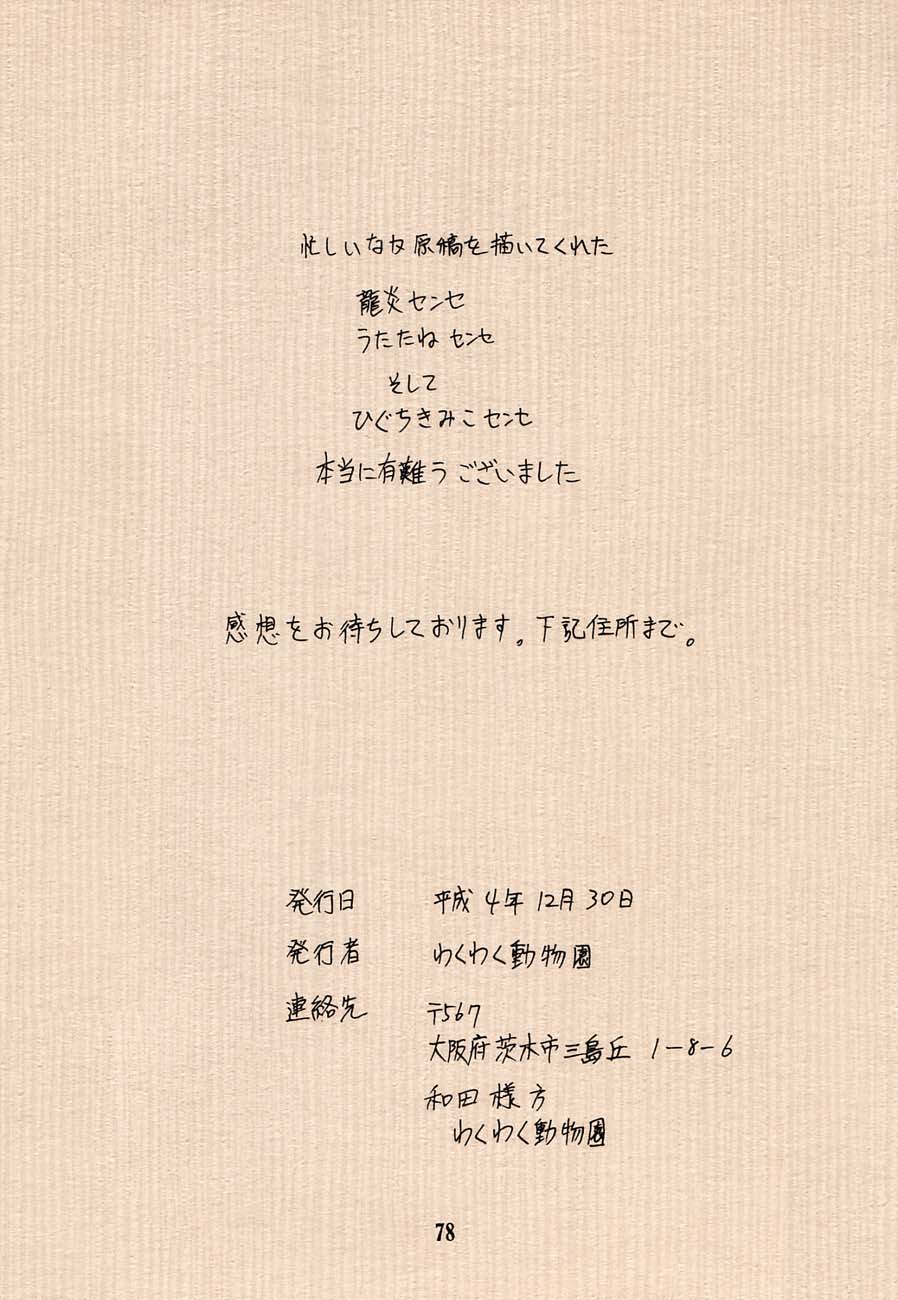 忙しいなか原稿を描いてくれた
龍炎センセ
うたたねセンセ
そして
ひぐちきみこセンセ
本当に有難うございました
感想をお待ちしております。下記住所まで。
発行日 平成4年12月30日
発行者 わくわく動物園
連絡先 〒567
大阪府茨木市三島丘 1-8-6
和田様方
わくわく動物園
78